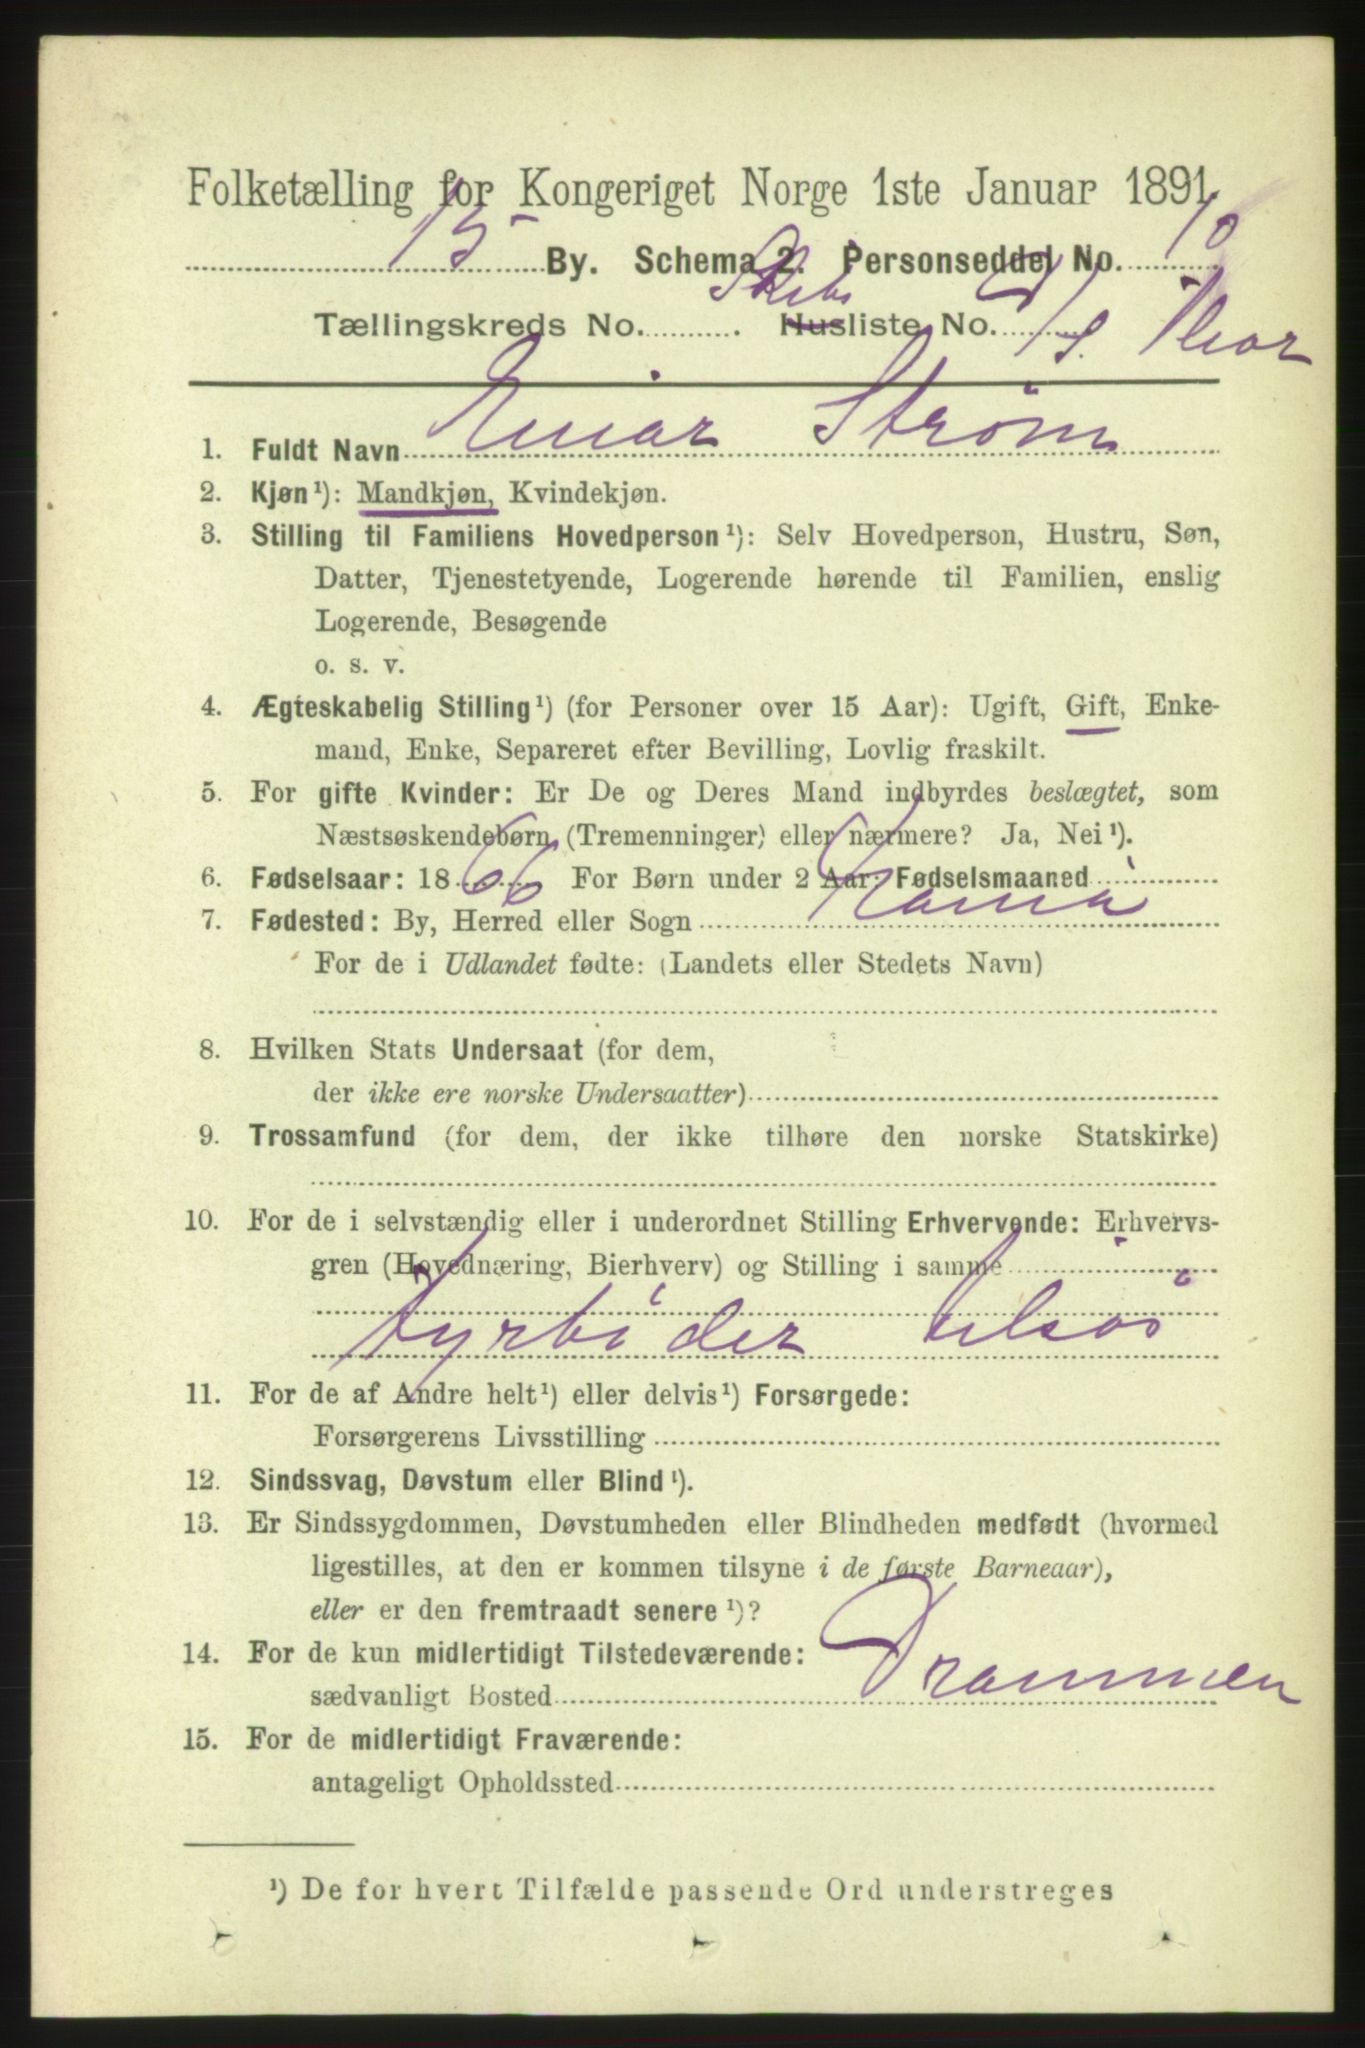 Folketælling for Kongeriget Norge 1ste Januar 1891.
15 By. Schema 2. Personseddel No. 10
Tællingskreds No. . Skibsliste No. S. Thor
1. Fuldt Navn Einar Strøm
2. Kjøn¹): Mandkjøn, Kvindekjøn.
3. Stilling til Familiens Hovedperson¹): Selv Hovedperson, Hustru, Søn,
Datter, Tjenestetyende, Logerende hørende til Familien, enslig
Logerende, Besøgende
o. s. v.
4. Ægteskabelig Stilling¹) (for Personer over 15 Aar): Ugift, Gift, Enke-
mand, Enke, Separeret efter Bevilling, Lovlig fraskilt.
5. For gifte Kvinder: Er De og Deres Mand indbyrdes beslægtet, som
Næstsøskendebørn (Tremenninger) eller nærmere? Ja, Nei¹).
6. Fødselsaar: 1866 For Børn under 2 Aar: Fødselsmaaned
7. Fødested: By, Herred eller Sogn
For de i Udlandet fødte: (Landets eller Stedets Navn)
8. Hvilken Stats Undersaat (for dem,
der ikke ere norske Undersaatter)
9. Trossamfund (for dem, der ikke tilhøre den norske Statskirke)
10. For de i selvstændig eller i underordnet Stilling Erhvervende: Erhvervs-
gren (Hovednæring, Bierhverv) og Stilling i samme
Fyrbøder tilsøs
11. For de af Andre helt¹) eller delvis¹) Forsørgede:
Forsørgerens Livsstilling
12. Sindssvag, Døvstum eller Blind¹).
13. Er Sindssygdommen, Døvstumheden eller Blindheden medfødt (hvormed
ligestilles, at den er kommen tilsyne i de første Barneaar),
eller er den fremtraadt senere¹)?
14. For de kun midlertidigt Tilstedeværende:
sædvanligt Bosted Drammen
15. For de midlertidigt Fraværende:
antageligt Opholdssted
¹) De for hvert Tilfælde passende Ord understreges